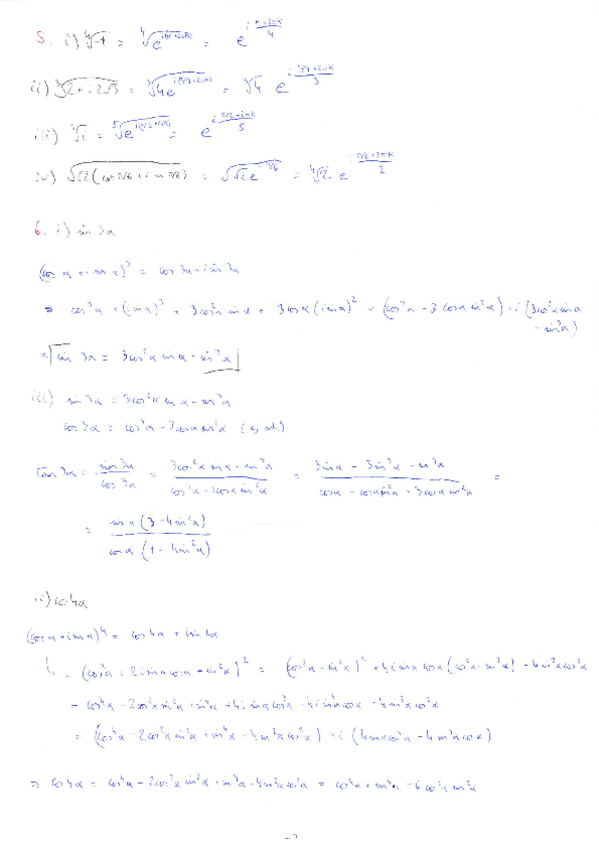 5. i) ∜-1 = ∜e^{i(π+2πk)} = e^{i (π+2πk)/4}
ii) ∛2+i2√3 = ∛4e^{i(π/3+2πk)} = ∛4 e^{i (π/3+2πk)/3}
iii) ⁵√i = ⁵√e^{i(π/2+2πk)} = e^{i (π/2+2πk)/5}
iv) √√2(cos π/6 + i sin π/6) = √√2e^{iπ/6} = ∜2 e^{i (π/6+2πk)/2}
6. i) sin 3α
(cos α + i sin α)³ = cos 3α + i sin 3α
= cos³α + (i sin α)³ + 3cos²α i sin α + 3cos α (i sin α)² = (cos³α - 3 cos α sin²α) + i (3cos²α sin α
- sin³α)
⇒ sin 3α = 3cos²α sin α - sin³α
iii) sin 3α = 3cos²α sin α - sin³α
cos 3α = cos³α - 3cos α sin²α
tan 3α = sin 3α / cos 3α = (3cos²α sin α - sin³α) / (cos³α - 3cos α sin²α) = (3sin α - 3sin³α - sin³α) / (cos α - cos α sin²α - 3cos α sin²α) =
= sin α (3 - 4sin²α) / cos α (1 - 4sin²α)
ii) cos 4α
(cos α + i sin α)⁴ = cos 4α + i sin 4α
= (cos²α + 2i sin α cos α - sin²α)² = (cos²α - sin²α)² + 4i sin α cos α (cos²α - sin²α) - 4sin²α cos²α
= cos⁴α - 2cos²α sin²α + sin⁴α + 4i sin α cos³α - 4i sin³α cos α - 4sin²α cos²α
= (cos⁴α - 2cos²α sin²α + sin⁴α - 4sin²α cos²α) + i (4sin α cos³α - 4sin³α cos α)
⇒ cos 4α = cos⁴α - 2cos²α sin²α + sin⁴α - 4sin²α cos²α = cos⁴α + sin⁴α - 6cos²α sin²α